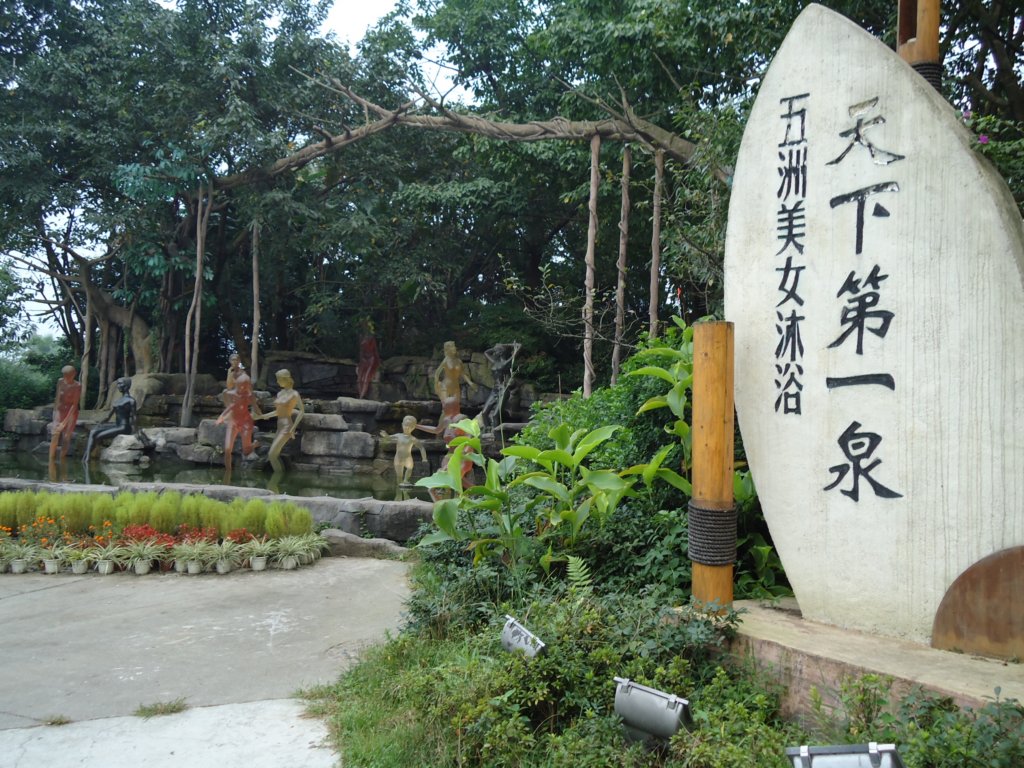 天下第一泉
五洲美女沐浴